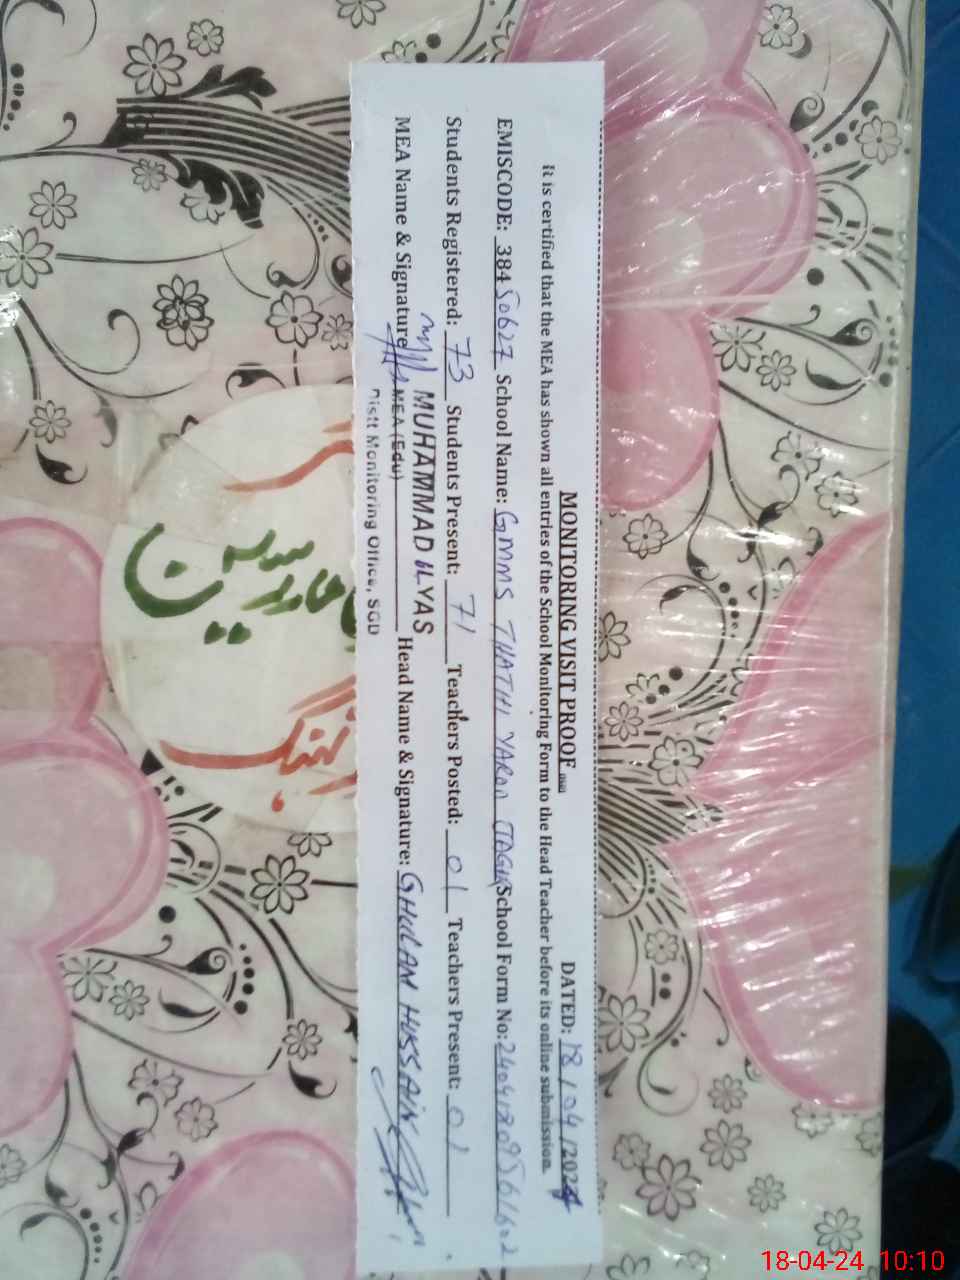 MONITORING VISIT PROOF
DATED: 18/04/2024
It is certified that the MEA has shown all entries of the School Monitoring Form to the Head Teacher before its online submission.
EMISCODE: 38450627 School Name: GMMS THATHI YAROO School Form No: 
Students Registered: 73 Students Present: 71 Teachers Posted: 01 Teachers Present: 01
MEA Name & Signature MUHAMMAD ILYAS Head Name & Signature: GHULAM HUSSAIN
MEA (Edu)
Distt Monitoring Office, SGD
18-04-24 10:10